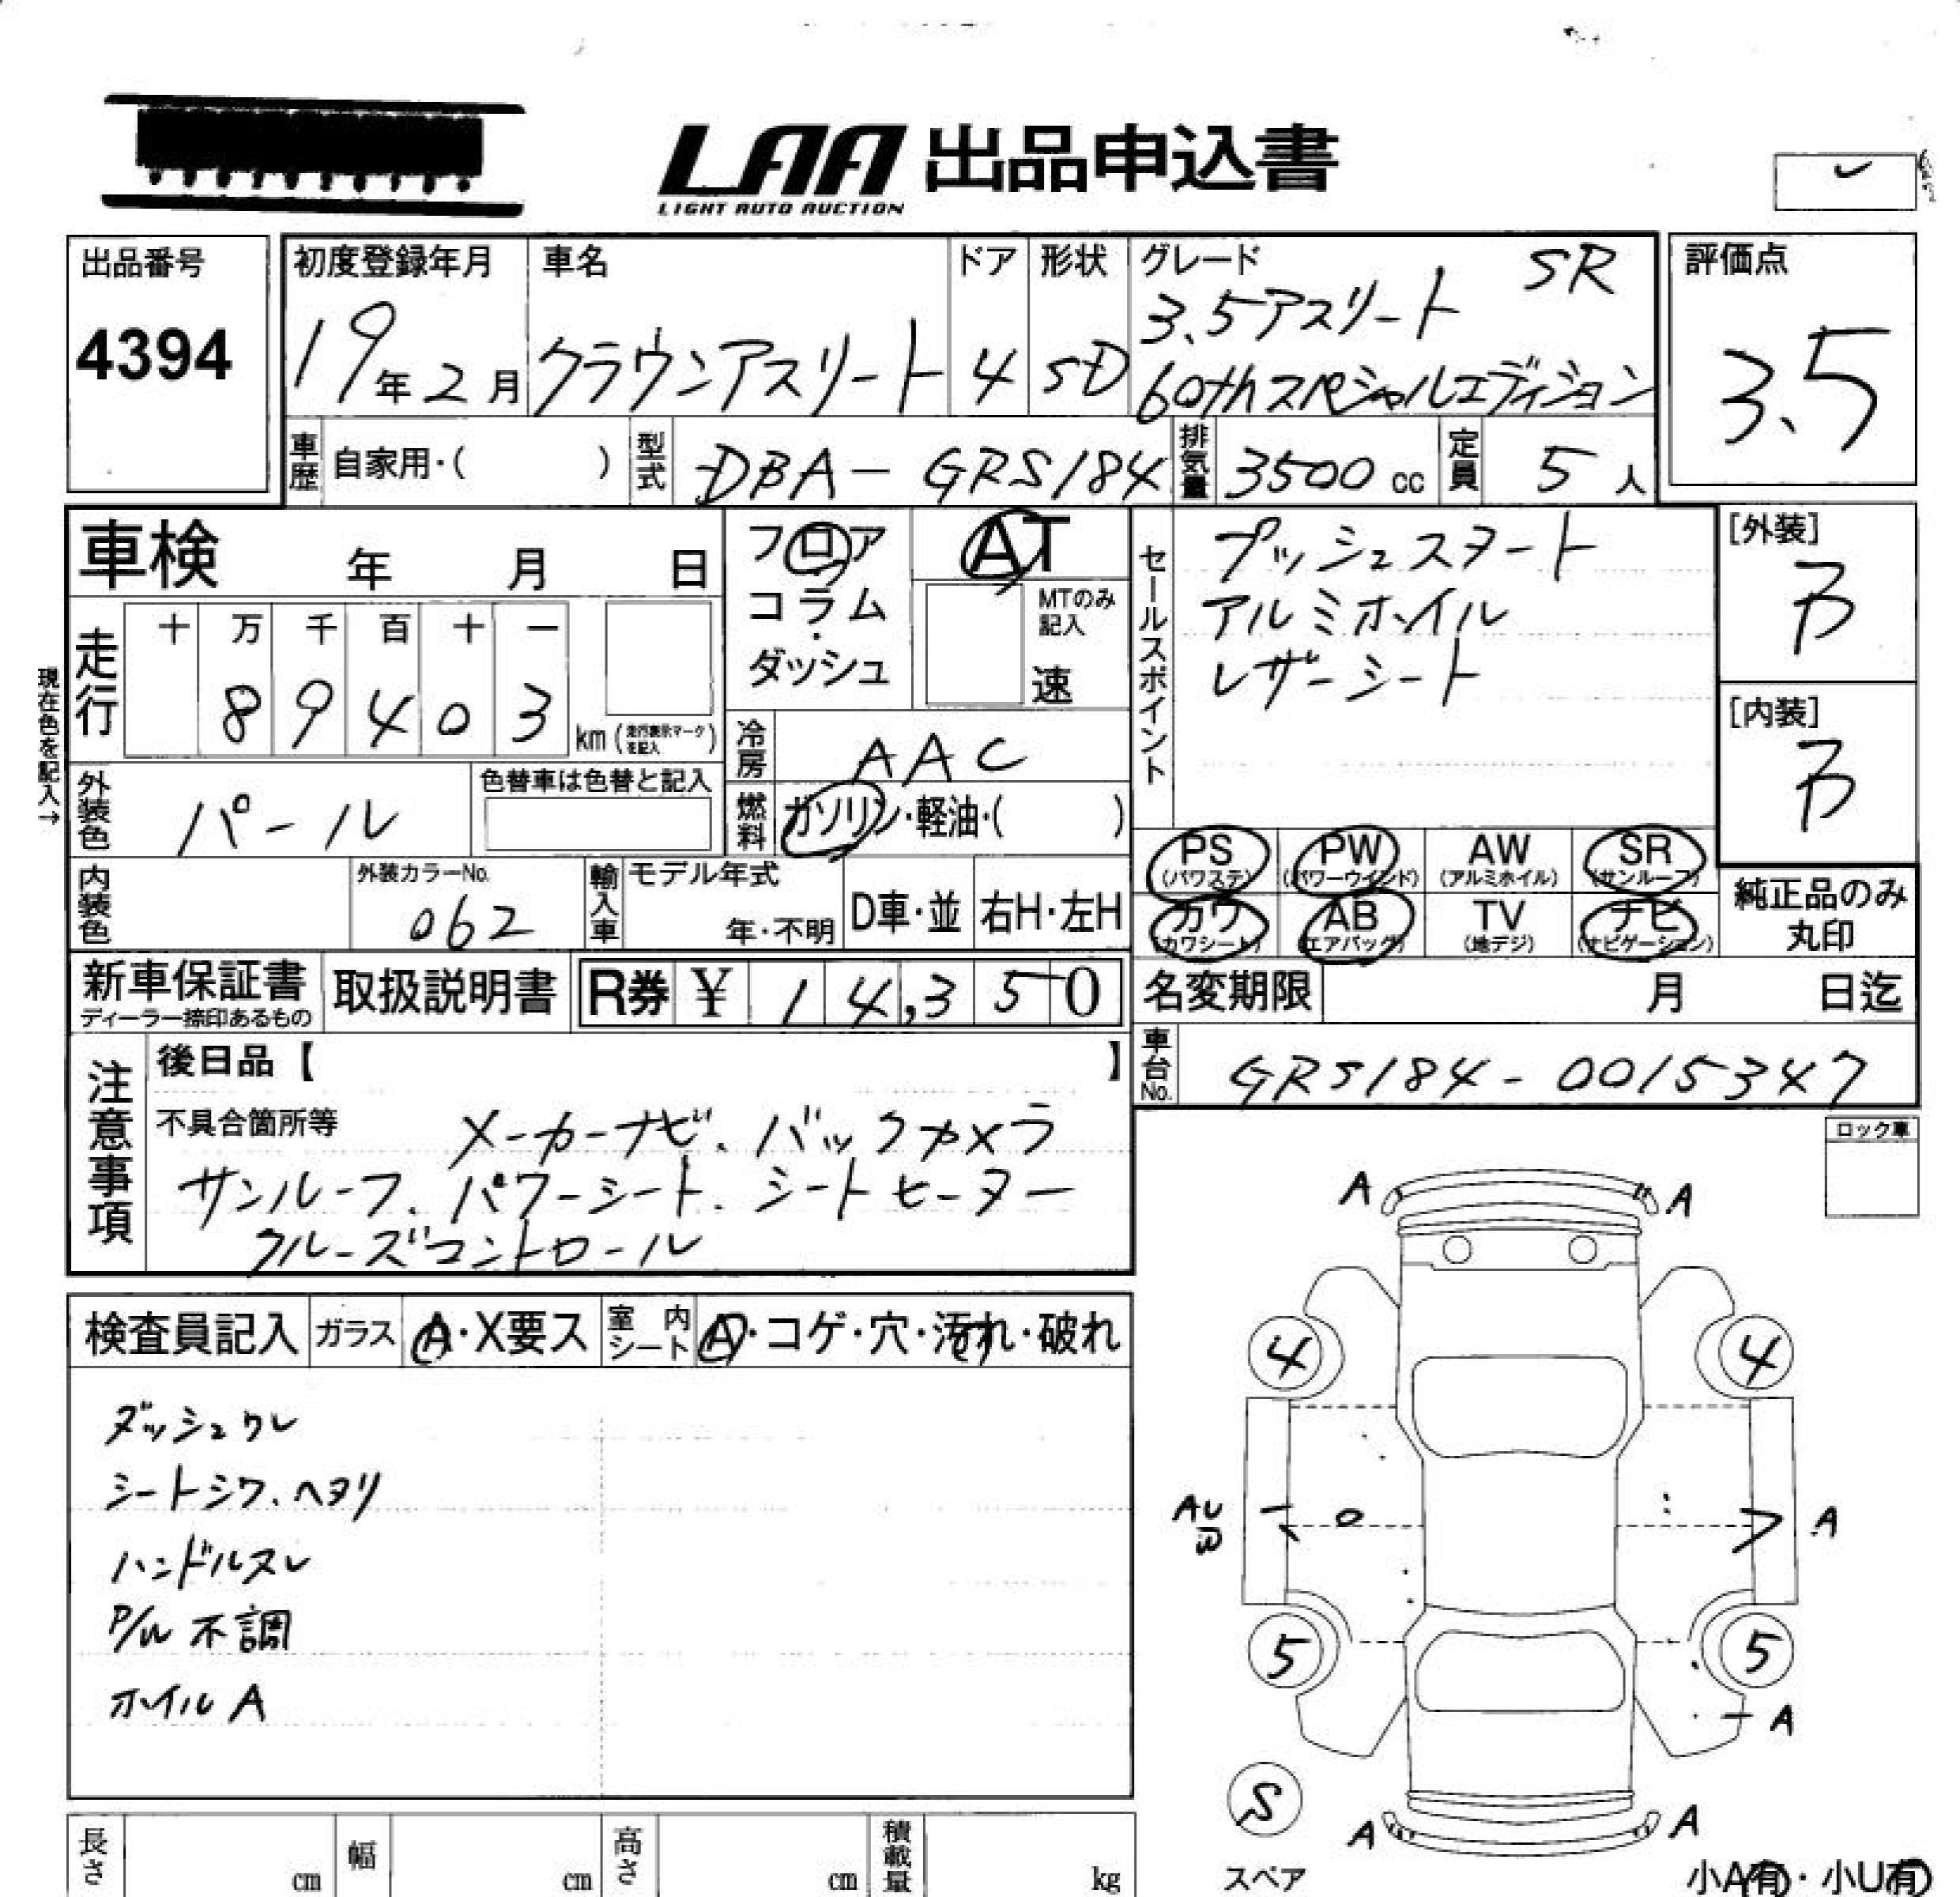 LAA 出品申込書
LIGHT AUTO AUCTION
出品番号
4394
初度登録年月
19年2月
車名
クラウンアスリート
ドア
4
形状
SD
グレード
SR
3.5アスリート
60thスペシャルエディション
評価点
3.5
車歴 自家用・( )
型式 DBA-GRS184
排気量 3500cc
定員 5人
車検 年 月 日
フロア
コラム
・
ダッシュ
AT
MTのみ
記入
速
セールスポイント
プッシュスタート
アルミホイル
レザーシート
[外装]
B
[内装]
B
現在色を記入→
走行
十 万 千 百 十 一
8 9 4 0 3 km (走行表示マークを記入)
冷房 AAC
外装色 パール
色替車は色替と記入
燃料 ガソリン・軽油・( )
PS (パワステ)
PW (パワーウインド)
AW (アルミホイル)
SR (サンルーフ)
カワ (カワシート)
AB (エアバッグ)
TV (地デジ)
ナビ (ナビゲーション)
純正品のみ
丸印
内装色
外装カラーNo.
062
輸入車
モデル年式
年・不明
D車・並
右H・左H
新車保証書
ディーラー捺印あるもの
取扱説明書
R券 ¥ 14,350
名変期限 月 日迄
車台No. GRS184-0015347
注意事項
後日品【 】
不具合箇所等
メーカーナビ、バックカメラ
サンルーフ、パワーシート、シートヒーター
クルーズコントロール
ロック車
検査員記入
ガラス A・X要ス
室内シート A・コゲ・穴・汚れ・破れ
ダッシュワレ
シートシワ、ヘタリ
ハンドルスレ
P/W 不調
ホイルA
A A
4 4
AU
B
A
5 5
A
S
スペア
A A
小A有・小U有
長さ cm
幅 cm
高さ cm
積載量 kg